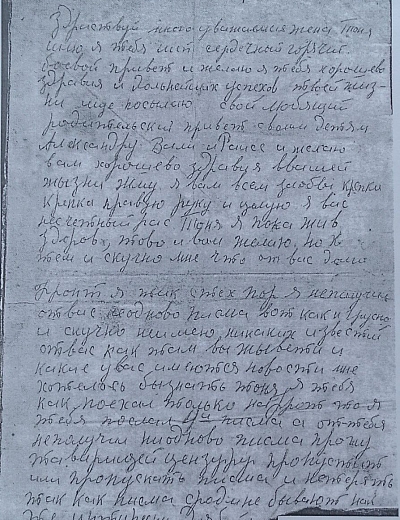 Здраствуй много уважаимая жена Тоня
шлю я тебя чист сердечный горячий
боевой привет и желаю я тебя хорошево
здравия и дальнейших успехов твоей жиз-
ни ище посылаю свой любящий
родительский привет своим детям
Александру Вали и Раисе и желаю
вам хорошево здравия ввашей
жызни жму я вам всем заобви крепка
крепка правую руку и цалую я вас
несчетный рас Тоня я пока жив
здоров, тово и вам желаю, но
тем и скучно мне что от вас дома
Фронт я так стех пор я неполучил
отвас неодново писма вот как и грусно
и скучно ни имею никаких известий
отвас как там вы жывети и
какие увас имеются новости мне
хотелось бы знать Тоня я тебя
как поехал только на фронт то я
тебя послал писма а оттебя
неполучил ниодново писма прошу
таварищей цензуру пропустить
или пропускать писма и нетерять
так как писма сродмне бывают как